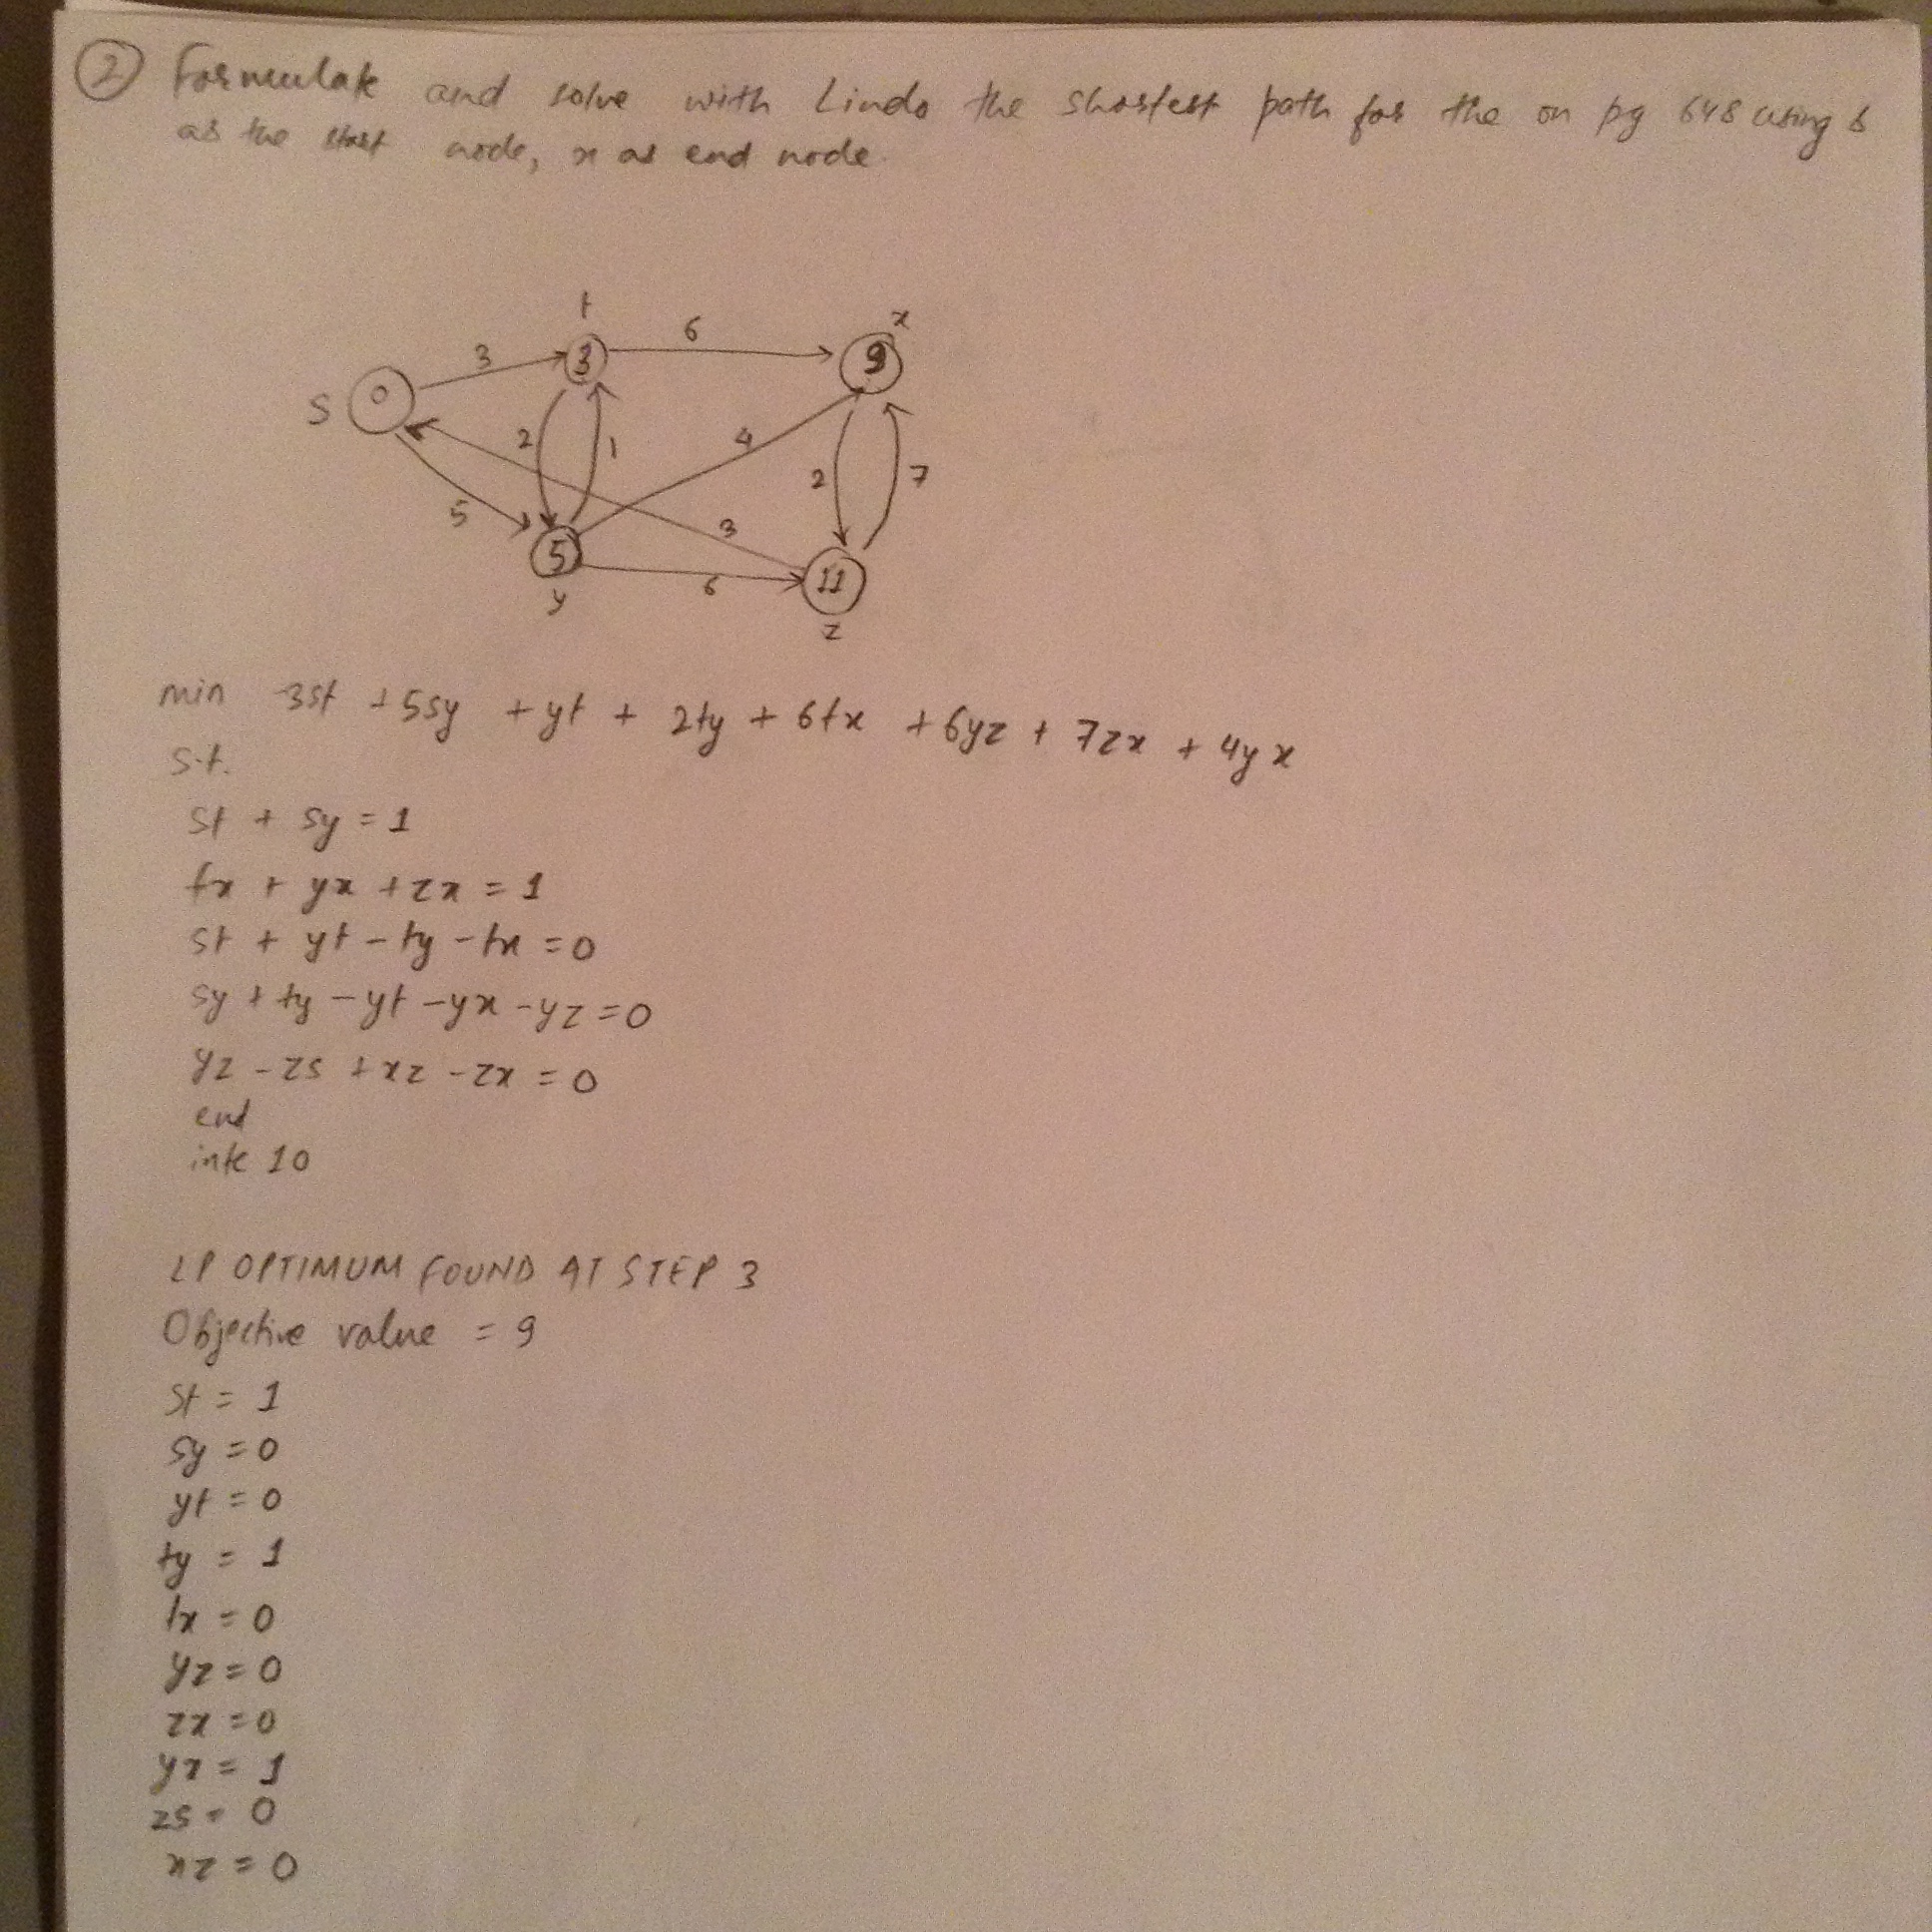 ② Formulate and solve with Lindo the shortest path for the on pg 648 using s
as the start node, x as end node.
t
x
6
3
3
9
0
S
2
1
4
2
7
5
3
5
11
6
y
z
min 3st + 5sy + yt + 2ty + 6tx + 6yz + 7zx + 4yx
s.t.
st + sy = 1
tx + yx + zx = 1
st + yt - ty - tx = 0
sy + ty - yt - yx - yz = 0
yz - zs + xz - zx = 0
end
inte 10
LP OPTIMUM FOUND AT STEP 3
Objective value = 9
st = 1
sy = 0
yt = 0
ty = 1
tx = 0
yz = 0
zx = 0
yx = 1
zs = 0
xz = 0